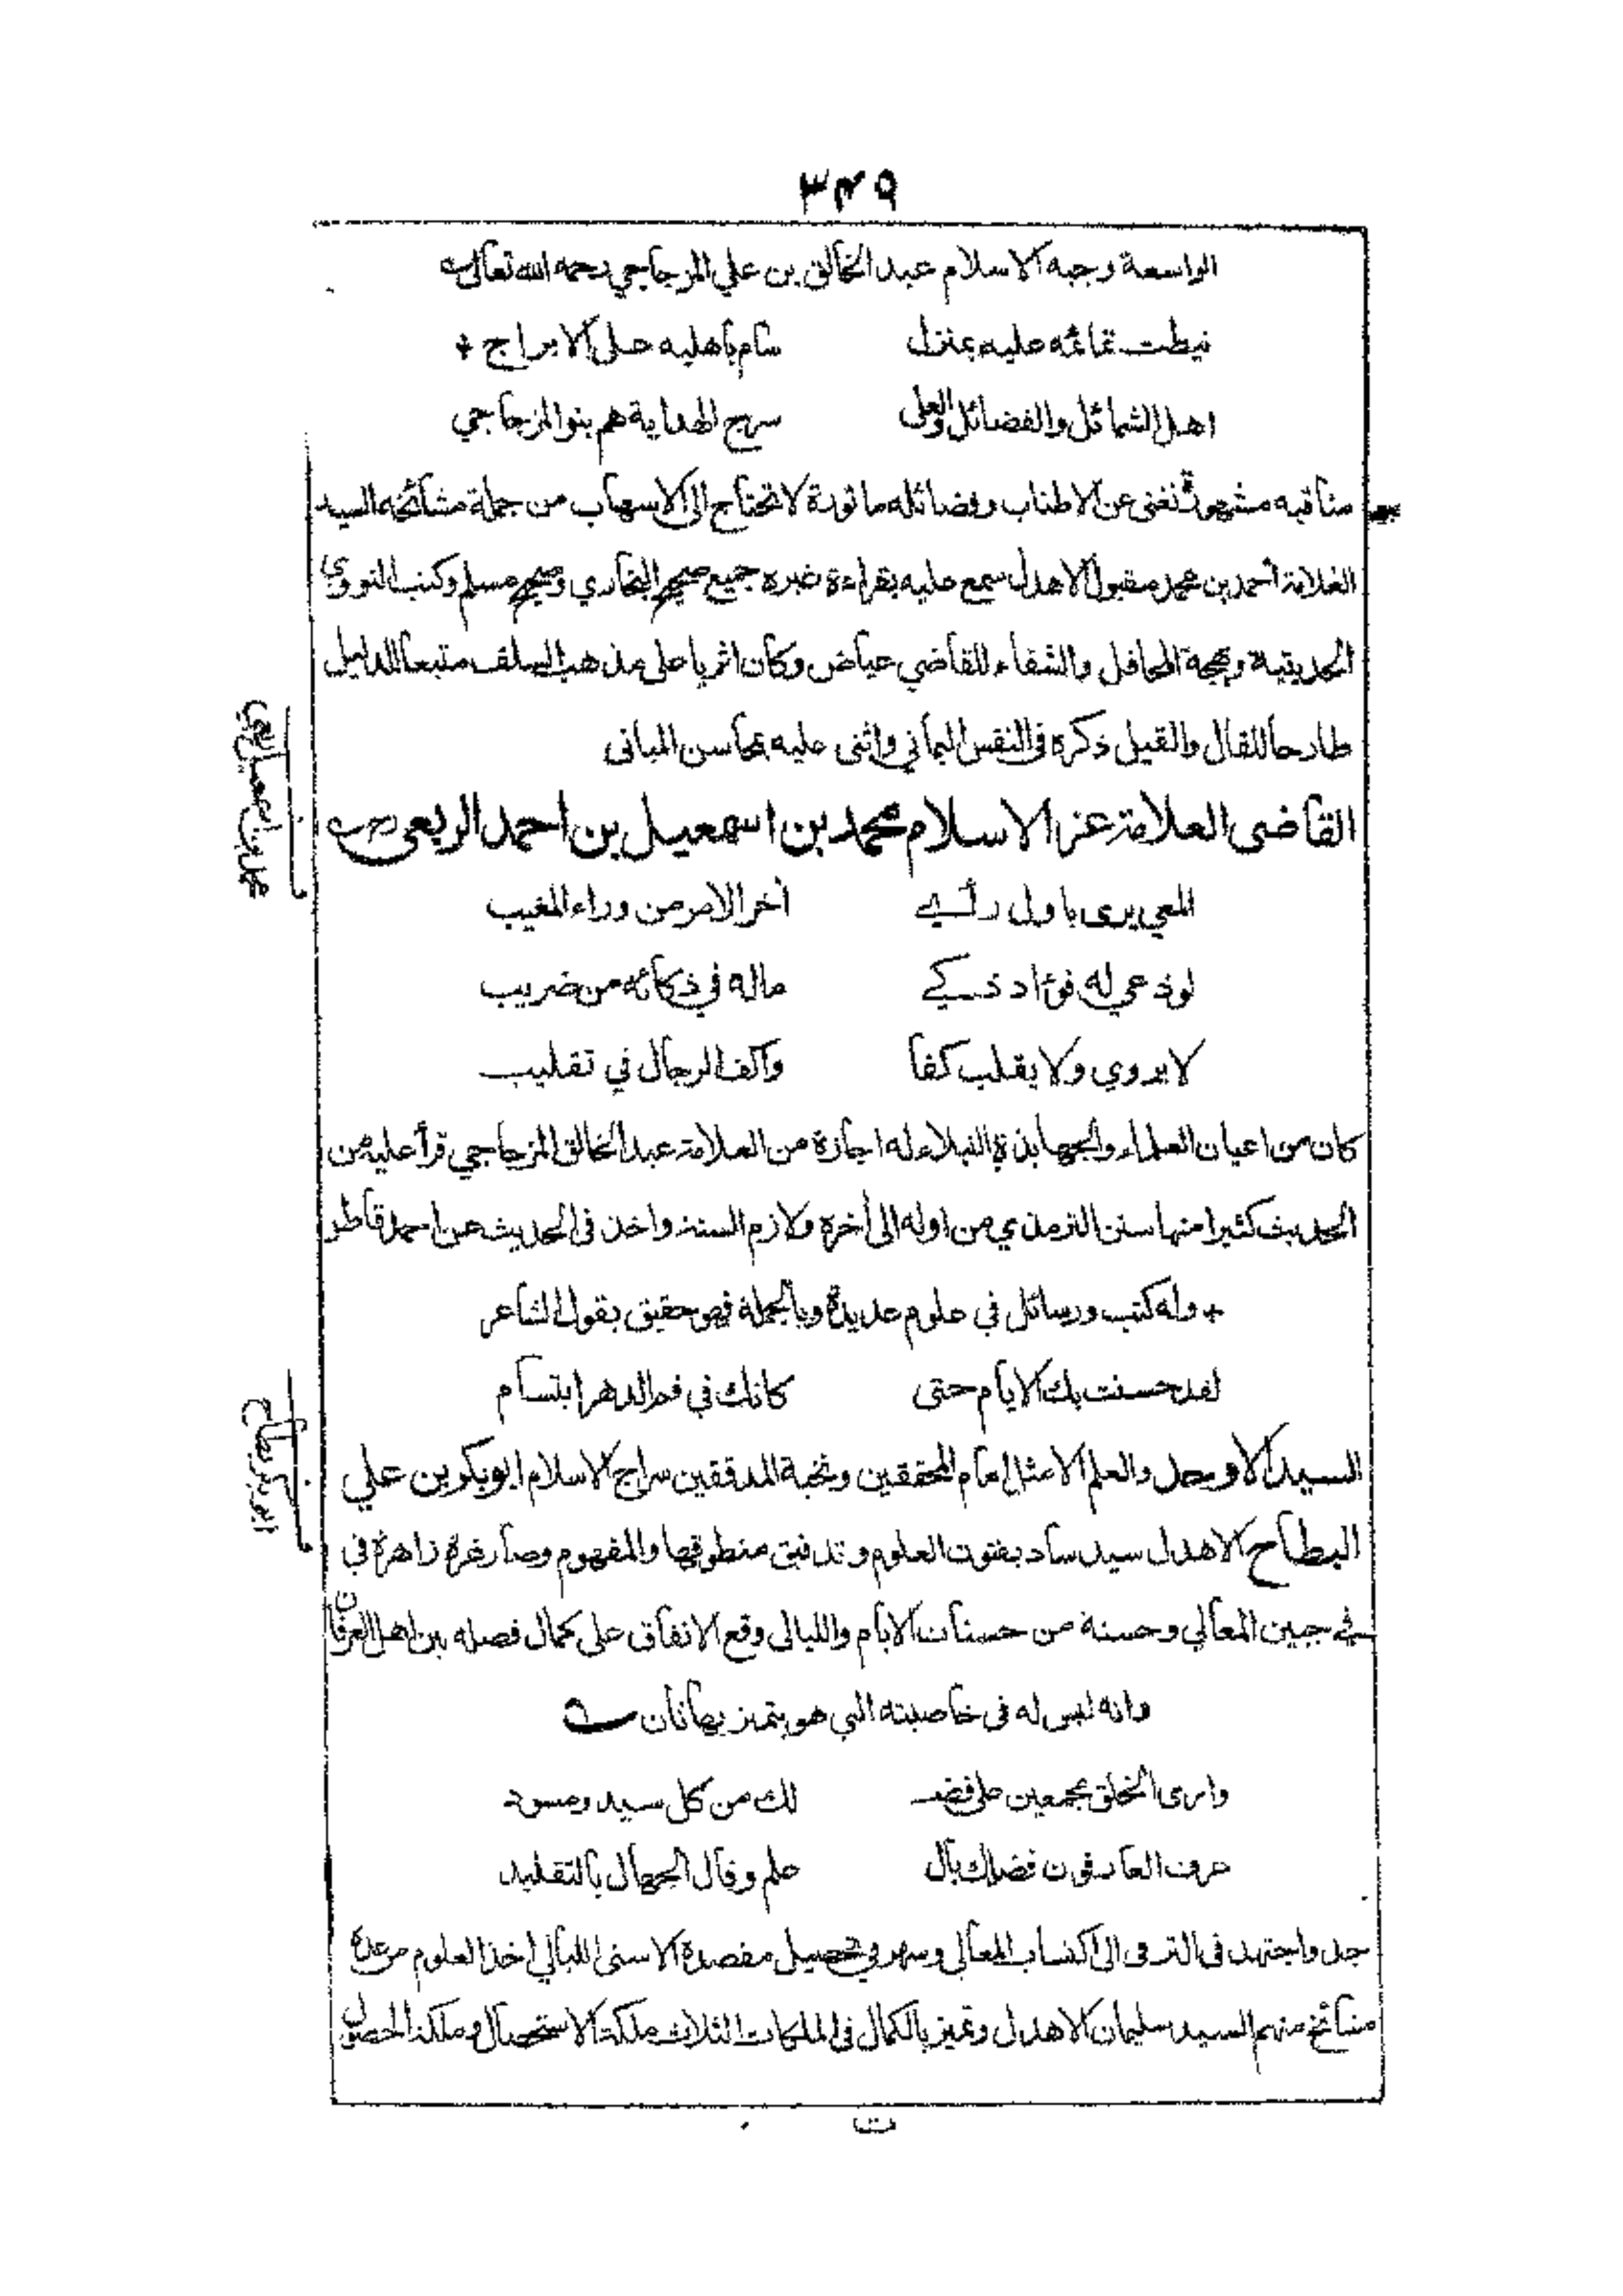 ٣٤٩
الواسعة وجيه الاسلام عبد الخالق بن علي المزجاجي رحمه الله تعالى
نيطت تمائمه عليه بمنزل سام باهليه حل الابراج
اهل الشمائل والفضائل والعلى سرج الهداية هم بنو المزجاجي
مناقبه مشهورة تغنى عن الاطناب وفضائله ماثورة لا تحتاج الى الاسهاب من جملة مشائخه السيد
العلامة احمد بن محمد مقبول الاهدل سمع عليه بقراءة غيره جميع صحيح البخاري وصحيح مسلم وكتب النووي
الحديثية وبهجة المحافل والشفاء للقاضي عياض وكان اثريا على مذهب السلف متبعا للدليل
طارحا للقال والقيل ذكره فى النفس اليماني واثنى عليه بمحاسن المبانى
القاضى العلامة عز الاسلام محمد بن اسمعيل بن احمد الربعى رح
المعي يرى باول رأي أخر الامر من وراء المغيب
لوذعي له فؤاد ذكي ماله في ذكائه من ضريب
لا يروي ولا يقلب كفا واكف الرجال في تقليب
كان من اعيان العلماء والجهابذة النبلاء له اجازة من العلامة عبد الخالق المزجاجي قرأ عليه من
الحديث كثيرا منها سنن الترمذي من اوله الى أخره ولازم السنة واخذ فى الحديث عن احمد قاطن
وله كتب ورسائل في علوم عديدة وبالجملة فهو حقيق بقول الشاعر
لقد حسنت بك الايام حتى كانك في فم الدهر ابتسام
السيد الاوحد والعلم الامثل امام المحققين ونخبة المدققين سراج الاسلام ابو بكر بن علي
البطاح الاهدل سيد ساد بفنون العلوم وتدقيق منطوقها والمفهوم وصار غرة زاهرة في
في جبين المعالي وحسنة من حسنات الايام والليالى وقع الاتفاق على كمال فضله بين اهل العرفان
وانه ليس له فى خاصيته التي هو يتميز بها ثان
وارى الخلق مجمعين على فضـ ـلك من كل سيد ومسود
عرف العارفون فضلك بالـ ـعلم وقال الجهال بالتقليد
جد واجتهد فى الترقى الى اكتساب المعالى وسهر في تحصيل مقصده الاسنى الليالي اخذ العلوم من عدة
مشائخ منهم السيد سليمان الاهدل وتميز بالكمال فى الملكات الثلاث ملكة الاستحصال وملكة الحصول
محمد بن اسمعيل الربعي
ابو بكر بطاح